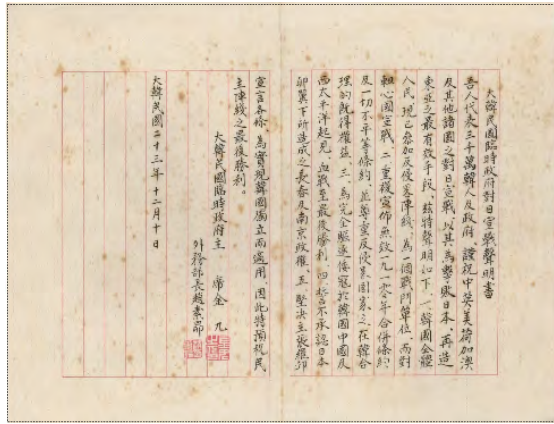 大韓民國臨時政府對日宣戰聲明書
吾人代表三千萬韓人及政府 謹祝中英美荷加澳
及其他諸國之對日宣戰、以其爲擊敗日本、再造
東亞之最有效手段、玆特聲明如下、一、韓國全體
人民、現已參加反侵畧陣綫、爲一個戰鬥單位、而對
軸心國宣戰、二、重複宣佈無效一九一〇年合併條約、
及一切不平等條約、並尊重反侵畧國家之在韓合
理的既得權益、三、爲完全驅逐倭寇於韓國中國及
西太平洋起見、血戰至最後勝利、四、誓不承認日本
卵翼下所造成之長春及南京政權、五、堅決主張羅邱
宣言各條、爲實現韓國獨立而適用、因此特預祝民
主陣綫之最後勝利。
大韓民國臨時政府主 席金 九
外務部長趙素昻
大韓民國二十三年十二月十日